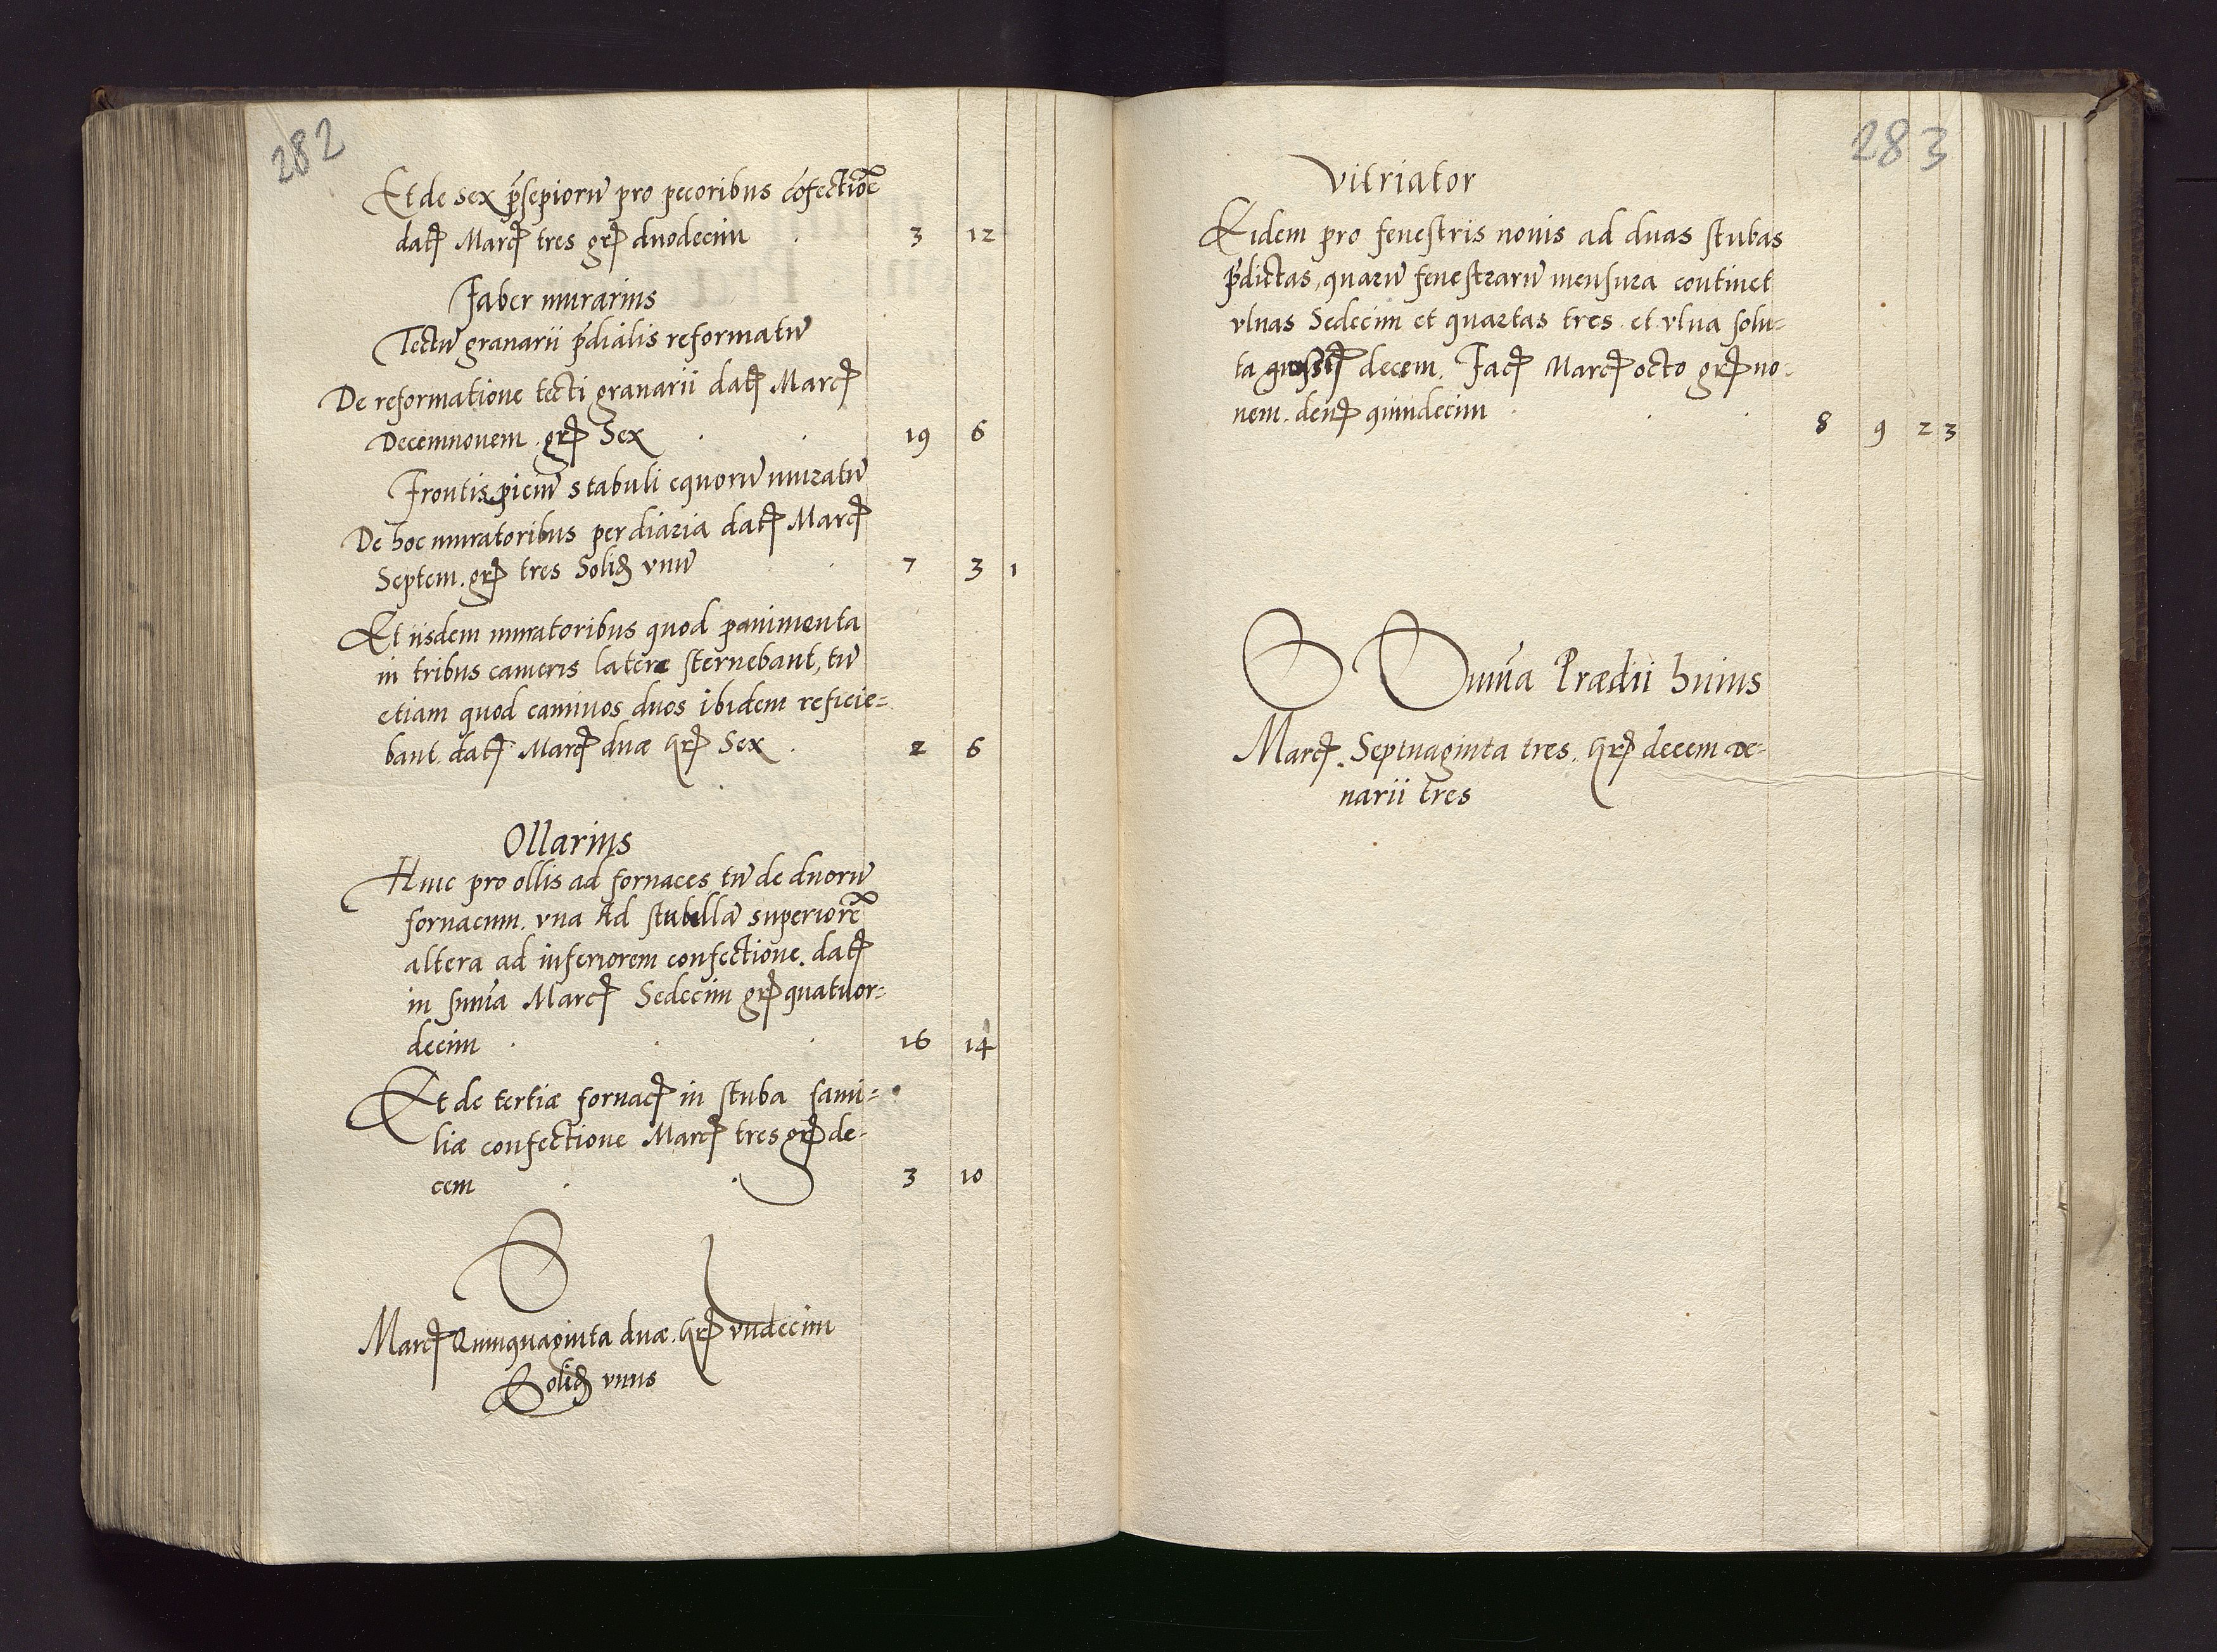 282
Et de sex p̃sepiorũ pro pecoribus cõfectiõe
datꝭ Marcꝭ tres grꝭ duodecim . 3 12
Faber murarius
Tectũ granarii p̃dialis reformatũ
De reformatione tecti granarii datꝭ Marcꝭ
Decemnouem . grꝭ Sex . . 19 6
Frontispiciũ stabuli equorũ muratũ
De hoc muratoribus per diaria datꝭ Marcꝭ
Septem . grꝭ tres Solidꝭ vnũ . 7 3 1
Et iisdem muratoribus quod pauimenta
in tribus cameris latere sternebant, tũ
etiam quod caminos duos ibidem reficie=
bant. datꝭ Marcꝭ duæ grꝭ Sex . 2 6
Ollarius
Huic pro ollis ad fornaces tũ de duorũ
fornacum. vna Ad stubellã superiorẽ
altera ad inferiorem confectione. datꝭ
in sum̃a Marcꝭ Sedecim grꝭ quatuor=
decim . . . 16 14
Et de tertiæ fornacꝭ in stuba fami=
liæ confectione Marcꝭ tres grꝭ de=
cem . . 3 10
S
Marcꝭ Quinquaginta duæ. grꝭ vndecim
Solidꝭ vnus
283
Vitriator
Eidem pro fenestris nouis ad duas stubas
p̃dictas, quarũ fenestrarũ mensura continet
vlnas Sedecim et quartas tres. et vlna solu=
ta decem. Facꝭ Marcꝭ octo grꝭ no=
nem. denꝭ quindecim . . . 8 9 2 3
Sum̃a Prædii huius
Marcꝭ. Septuaginta tres. grꝭ decem de=
narii tres